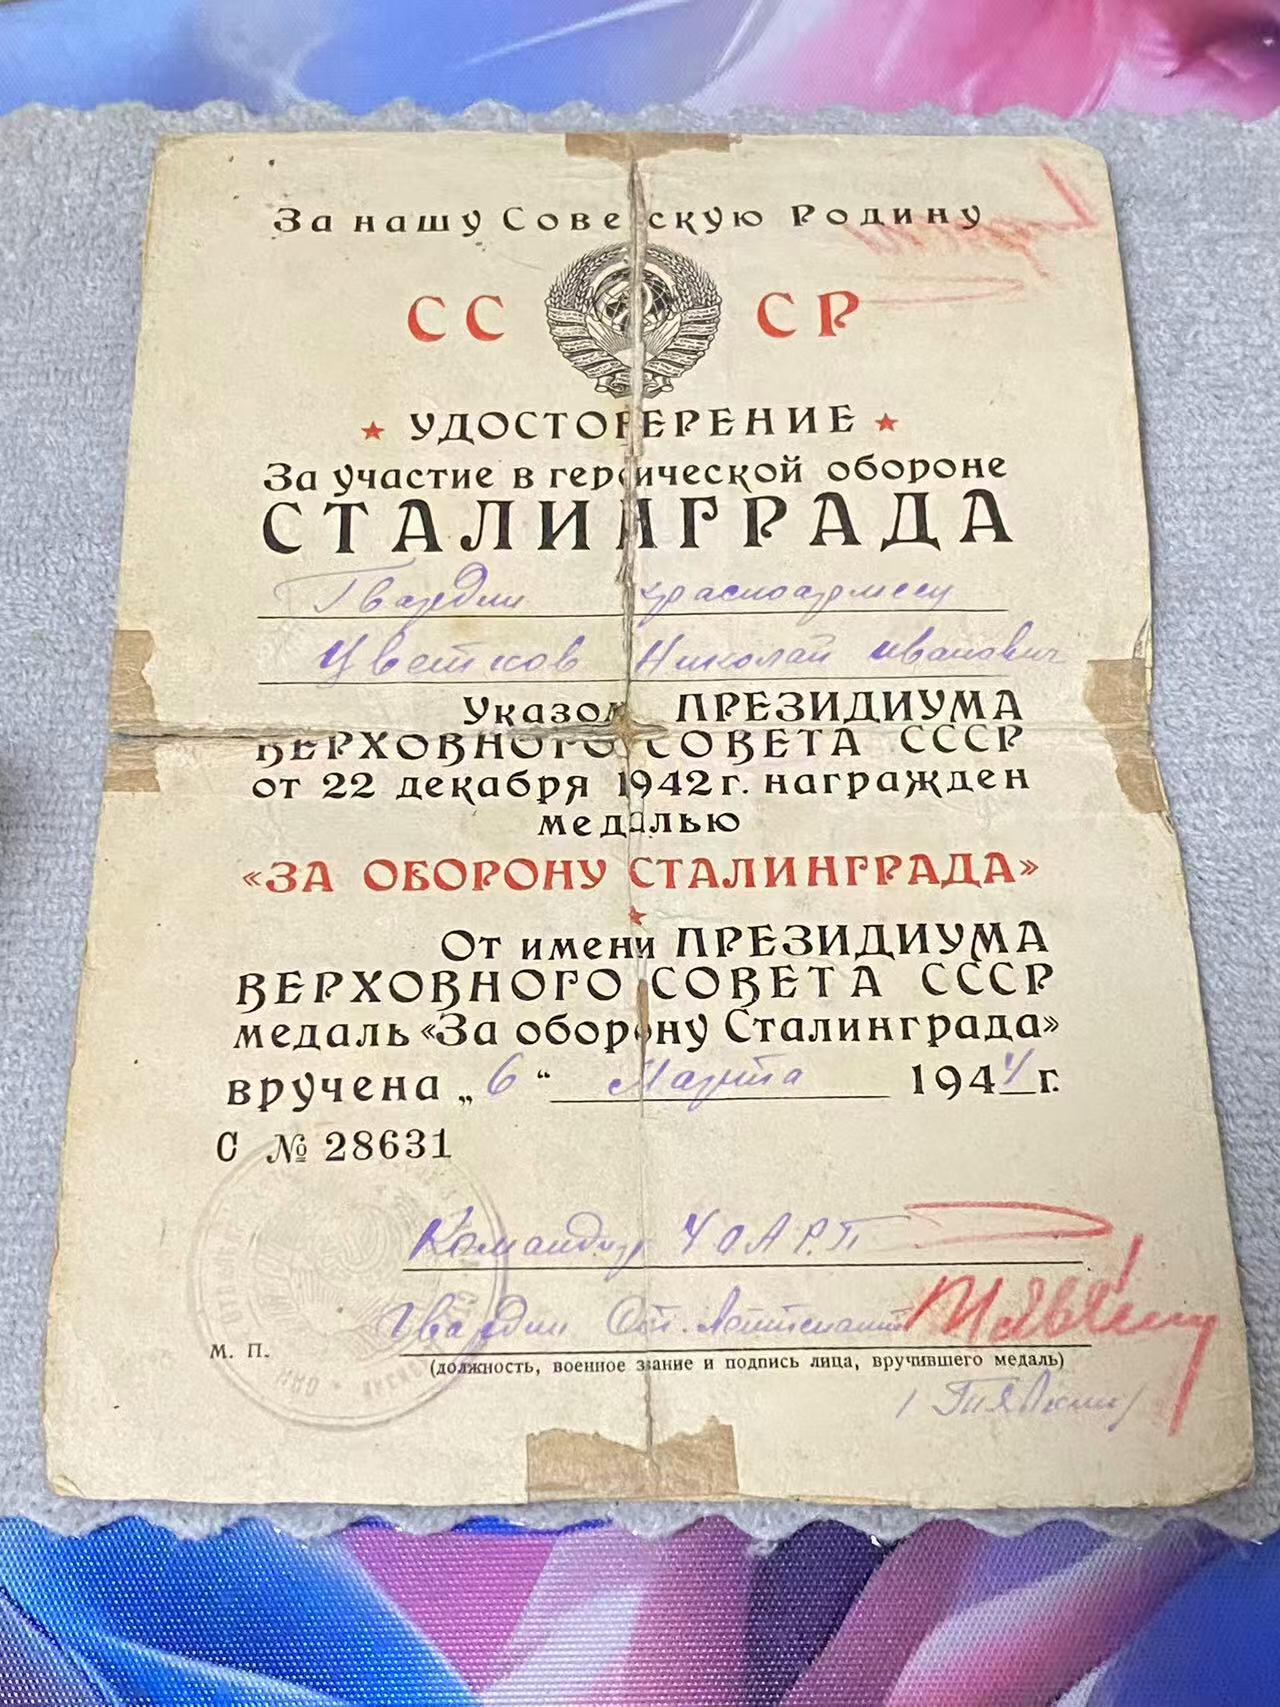 За нашу Советскую Родину
СССР
УДОСТОВЕРЕНИЕ
За участие в героической обороне
СТАЛИНГРАДА
Гвардии красноармеец
Цветков Николай Иванович
Указом ПРЕЗИДИУМА
ВЕРХОВНОГО СОВЕТА СССР
от 22 декабря 1942 г. награжден
медалью
«ЗА ОБОРОНУ СТАЛИНГРАДА»
От имени ПРЕЗИДИУМА
ВЕРХОВНОГО СОВЕТА СССР
медаль «За оборону Сталинграда»
вручена „6“ Марта 1944 г.
С № 28631
Командир
Гвардии Ст. Лейтенант
М. П.
(должность, военное звание и подпись лица, вручившего медаль)